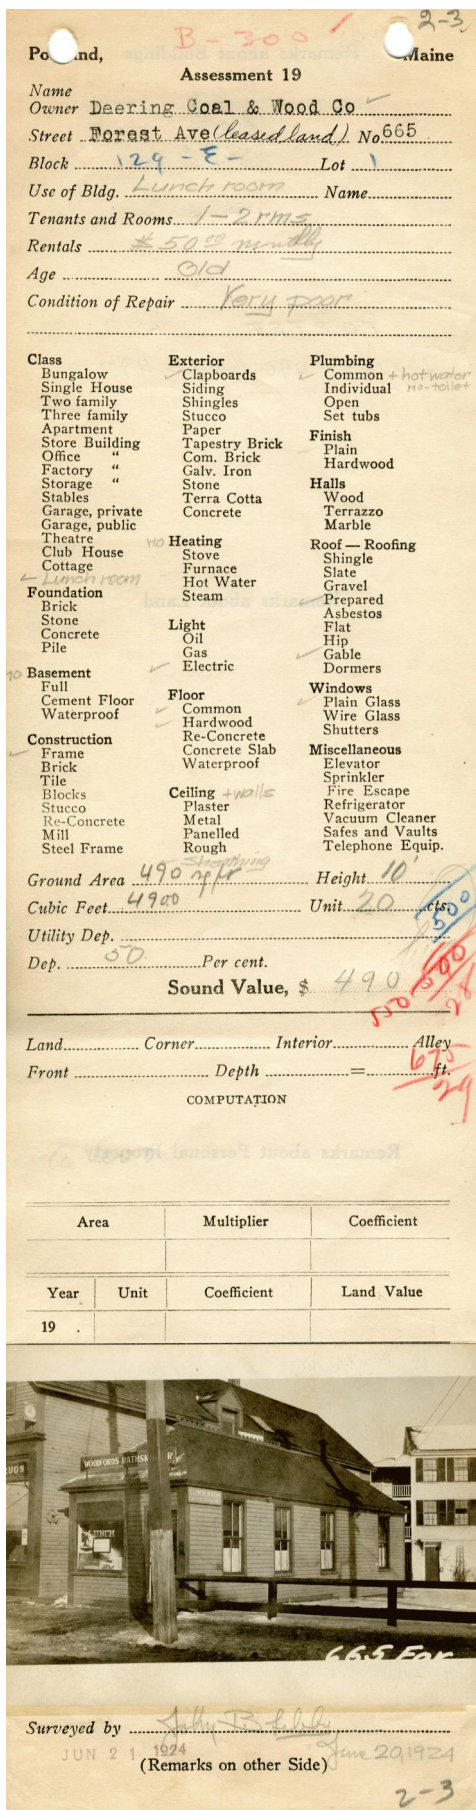 B-300
2-3
Po nd, Maine
Assessment 19
Name
Owner Deering Coal & Wood Co
Street Forest Ave (leased land) No. 665
Block 129 - E - Lot 1
Use of Bldg. Lunch room Name
Tenants and Rooms 1-2 rms
Rentals $50.00 monthly
Age Old
Condition of Repair Very poor
Class
Bungalow
Single House
Two family
Three family
Apartment
Store Building
Office "
Factory "
Storage "
Stables
Garage, private
Garage, public
Theatre
Club House
Cottage
✓ Lunch room
Foundation
Brick
Stone
Concrete
Pile
no Basement
Full
Cement Floor
Waterproof
Construction
✓ Frame
Brick
Tile
Blocks
Stucco
Re-Concrete
Mill
Steel Frame
Exterior
✓ Clapboards
Siding
Shingles
Stucco
Paper
Tapestry Brick
Com. Brick
Galv. Iron
Stone
Terra Cotta
Concrete
no Heating
Stove
Furnace
Hot Water
Steam
Light
Oil
Gas
✓ Electric
Floor
✓ Common
✓ Hardwood
Re-Concrete
Concrete Slab
Waterproof
Ceiling + walls
Plaster
Metal
Panelled
Rough
✓ Sheathing
Plumbing
✓ Common + hot water
Individual no-toilet
Open
Set tubs
Finish
✓ Plain
Hardwood
Halls
Wood
Terrazzo
Marble
Roof — Roofing
Shingle
Slate
Gravel
✓ Prepared
Asbestos
Flat
Hip
✓ Gable
Dormers
Windows
✓ Plain Glass
Wire Glass
Shutters
Miscellaneous
Elevator
Sprinkler
Fire Escape
Refrigerator
Vacuum Cleaner
Safes and Vaults
Telephone Equip.
Ground Area 490 sq ft Height 10'
Cubic Feet 4900 Unit 20 cts.
500
Utility Dep.
Dep. 50 Per cent.
Sound Value, $ 490
500
28
550
Land Corner Interior Alley
Front Depth = ft.
675
29
COMPUTATION
Remarks about Personal Property
Area Multiplier Coefficient
Year Unit Coefficient Land Value
19 .
RUGS
WOODFORDS RATHSK R
LUNCH
665 For
Surveyed by
JUN 21 1924
June 20, 1924
(Remarks on other Side)
2-3